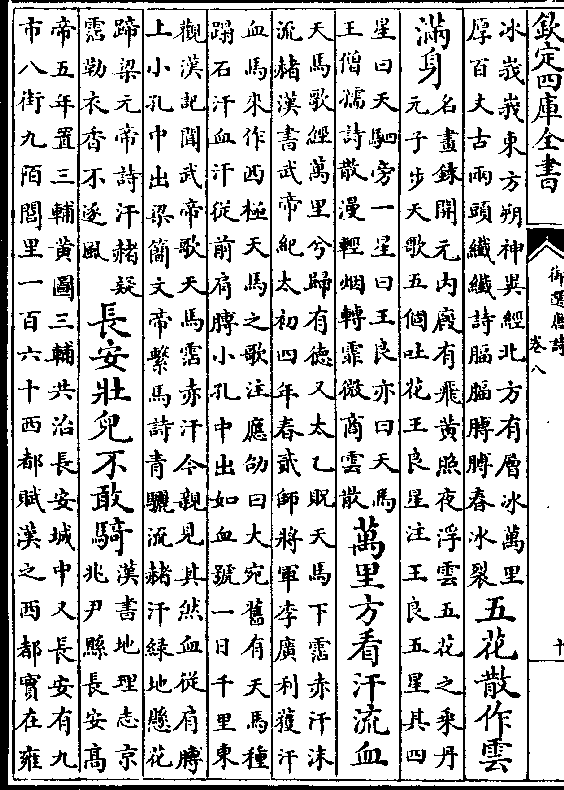 欽定四庫全書
御選唐詩
卷八
十
冰峩峩東方朔神異經北方有層冰萬里
厚百丈古兩頭纖纖詩腷腷膊膊春冰裂
五花散作雲
滿身
名畫錄開元内廐有飛黃照夜浮雲五花之乘丹
元子步天歌五個吐花王良星注王良五星其四
星曰天駟旁一星曰王良亦曰天馬
王僧孺詩散漫輕烟轉霏微商雲散
萬里方看汗流血
天馬歌經萬里兮歸有德又太乙貺天馬下霑赤汗沫
流赭漢書武帝紀太初四年春貳師將軍李廣利獲汗
血馬來作西極天馬之歌注應劭曰大宛舊有天馬種
蹋石汗血汗從前肩膊小孔中出如血號一日千里東
觀漢記聞武帝歌天馬霑赤汗今親見其然血從肩膊
上小孔中出梁簡文帝繫馬詩青驪流赭汗緑地懸花
蹄梁元帝詩汗赭疑
霑勒衣香不逐風
長安壯兒不敢騎
漢書地理志京
兆尹縣長安高
帝五年置三輔黃圖三輔共治長安城中又長安有九
市八街九陌閭里一百六十西都賦漢之西都實在雍